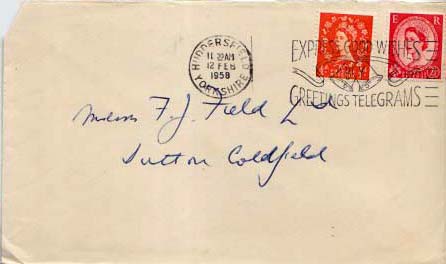 HUDDERSFIELD
YORKSHIRE
11 30AM
12 FEB
1958
EXPRESS GOOD WISHES
BY
GREETINGS TELEGRAMS
E R
F. J. Field L
Sutton Coldfield